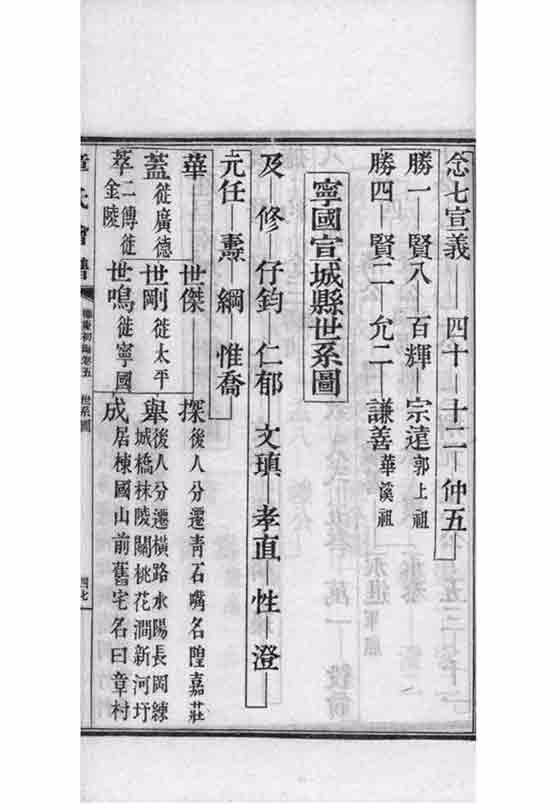 念七宣義 四十 十二 仲五
勝一 賢八 百輝 宗遠 郭上祖
勝四 賢二 允二 謙善 華溪祖
寧國宣城縣世系圖
及 修 仔鈞 仁郁 文瑱 孝直 性 澄
元任 燾 綱 惟喬
華 世傑 探 後人分遷靑石嘴名隍嘉莊
蓋 徙廣德 世剛 徙太平 舉 後人分遷橫路水陽長岡練城橋抹陵關桃花澗新河圩
萃 二傳徙金陵 世鳴 徙寧國 成 居棟國山前舊宅名曰章村
章氏會譜 德慶初編卷五 世系圖 四七